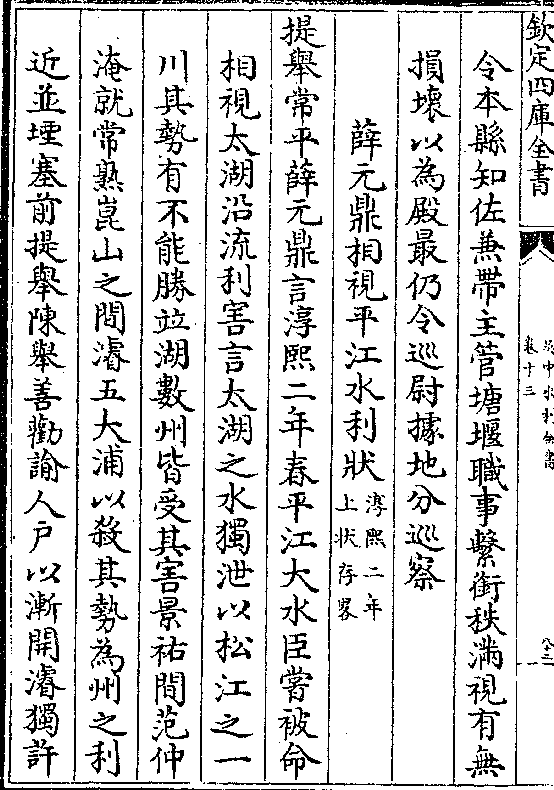 欽定四庫全書
吳中水利全書
卷十三
令本縣知佐兼帶主管塘堰職事繫銜秩滿視有無
損壞以為殿最仍令巡尉據地分巡察
薛元鼎相視平江水利狀淳熙二年上狀存畧
提舉常平薛元鼎言淳熙二年春平江大水臣嘗被命
相視太湖沿流利害言太湖之水獨泄以松江之一
川其勢有不能勝竝湖數州皆受其害景祐間范仲
淹就常熟崑山之間濬五大浦以殺其勢為州之利
近並堙塞前提舉陳舉善勸諭人戶以漸開濬獨許